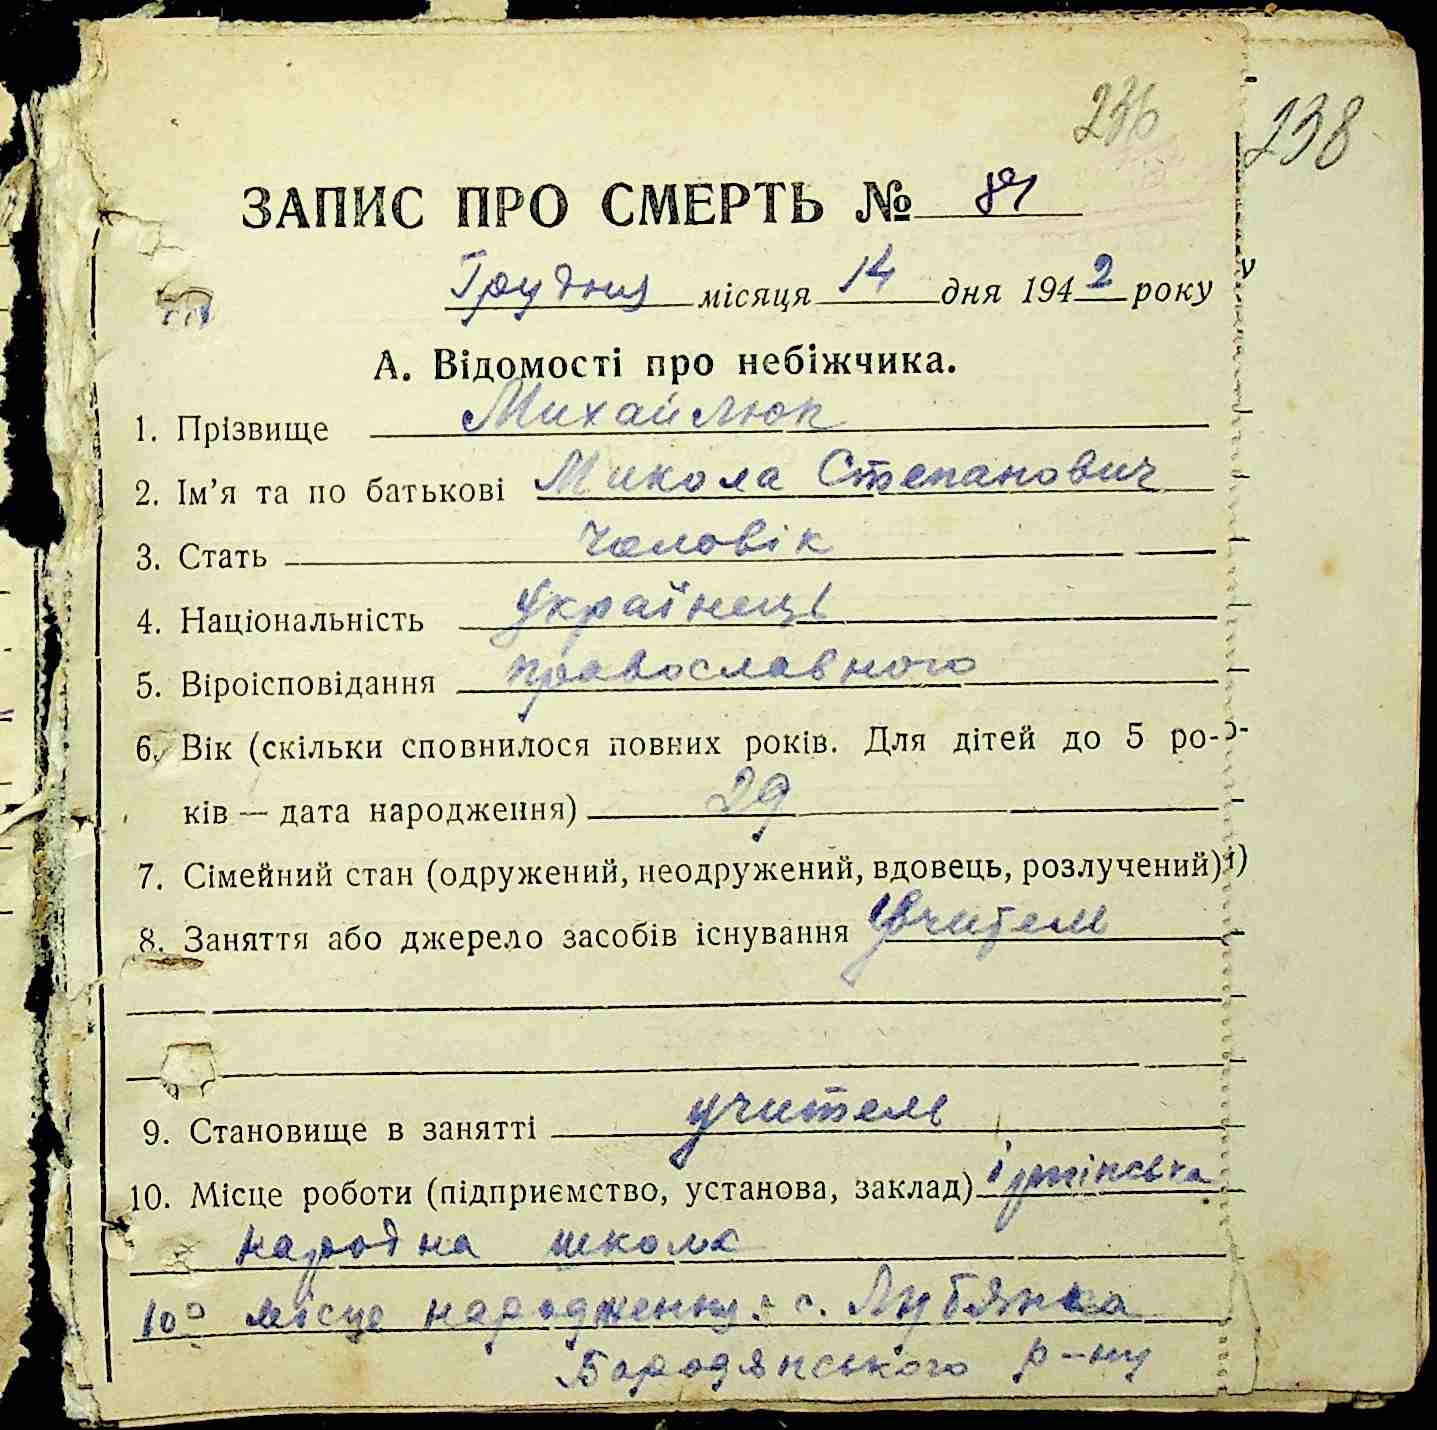 236
238
ЗАПИС ПРО СМЕРТЬ №
Грудня місяця 14 дня 1942 року
А. Відомості про небіжчика.
1. Прізвище Михайлюк
2. Ім'я та по батькові Микола Степанович
3. Стать чоловік
4. Національність українець
5. Віроісповідання православного
6. Вік (скільки сповнилося повних років. Для дітей до 5 ро-
ків — дата народження) 29
7. Сімейний стан (одружений, неодружений, вдовець, розлучений)
8. Заняття або джерело засобів існування Учитель
9. Становище в занятті учитель
10. Місце роботи (підприємство, установа, заклад) ірпінська
народна школа
10а місце народження: с. Лубянка
Бородянського р-ну